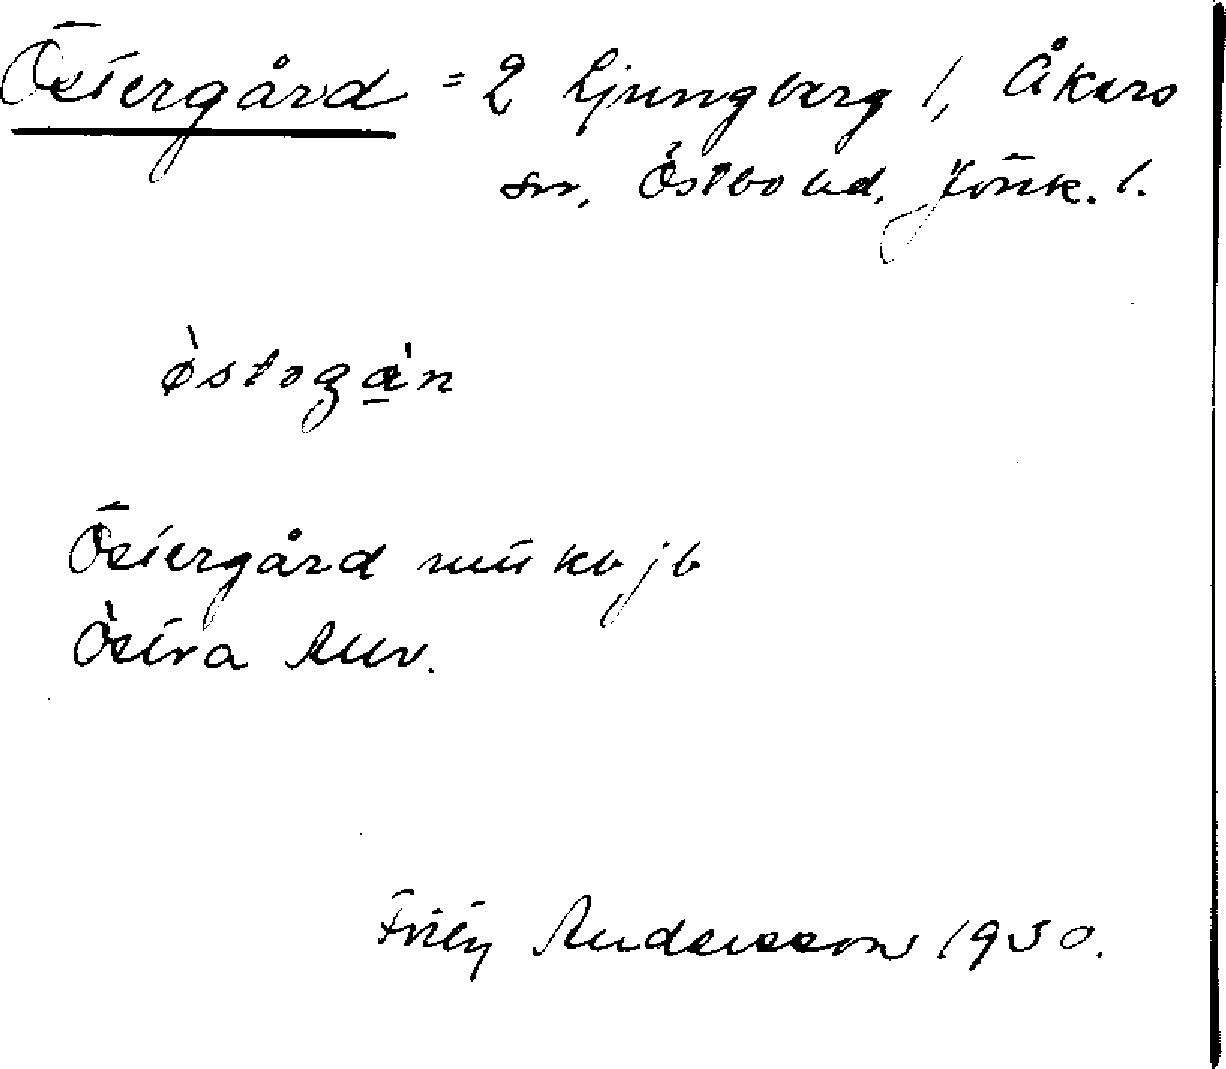 Östergård = 2 Ljungberg 1, Åkers
sn, Östbo hd, Jönk. l.
östogan
Östergård jb
Östra
Andersson 1930.